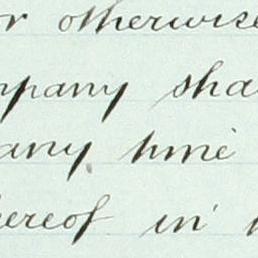 or otherwise
mpany sha
any time
hereof in